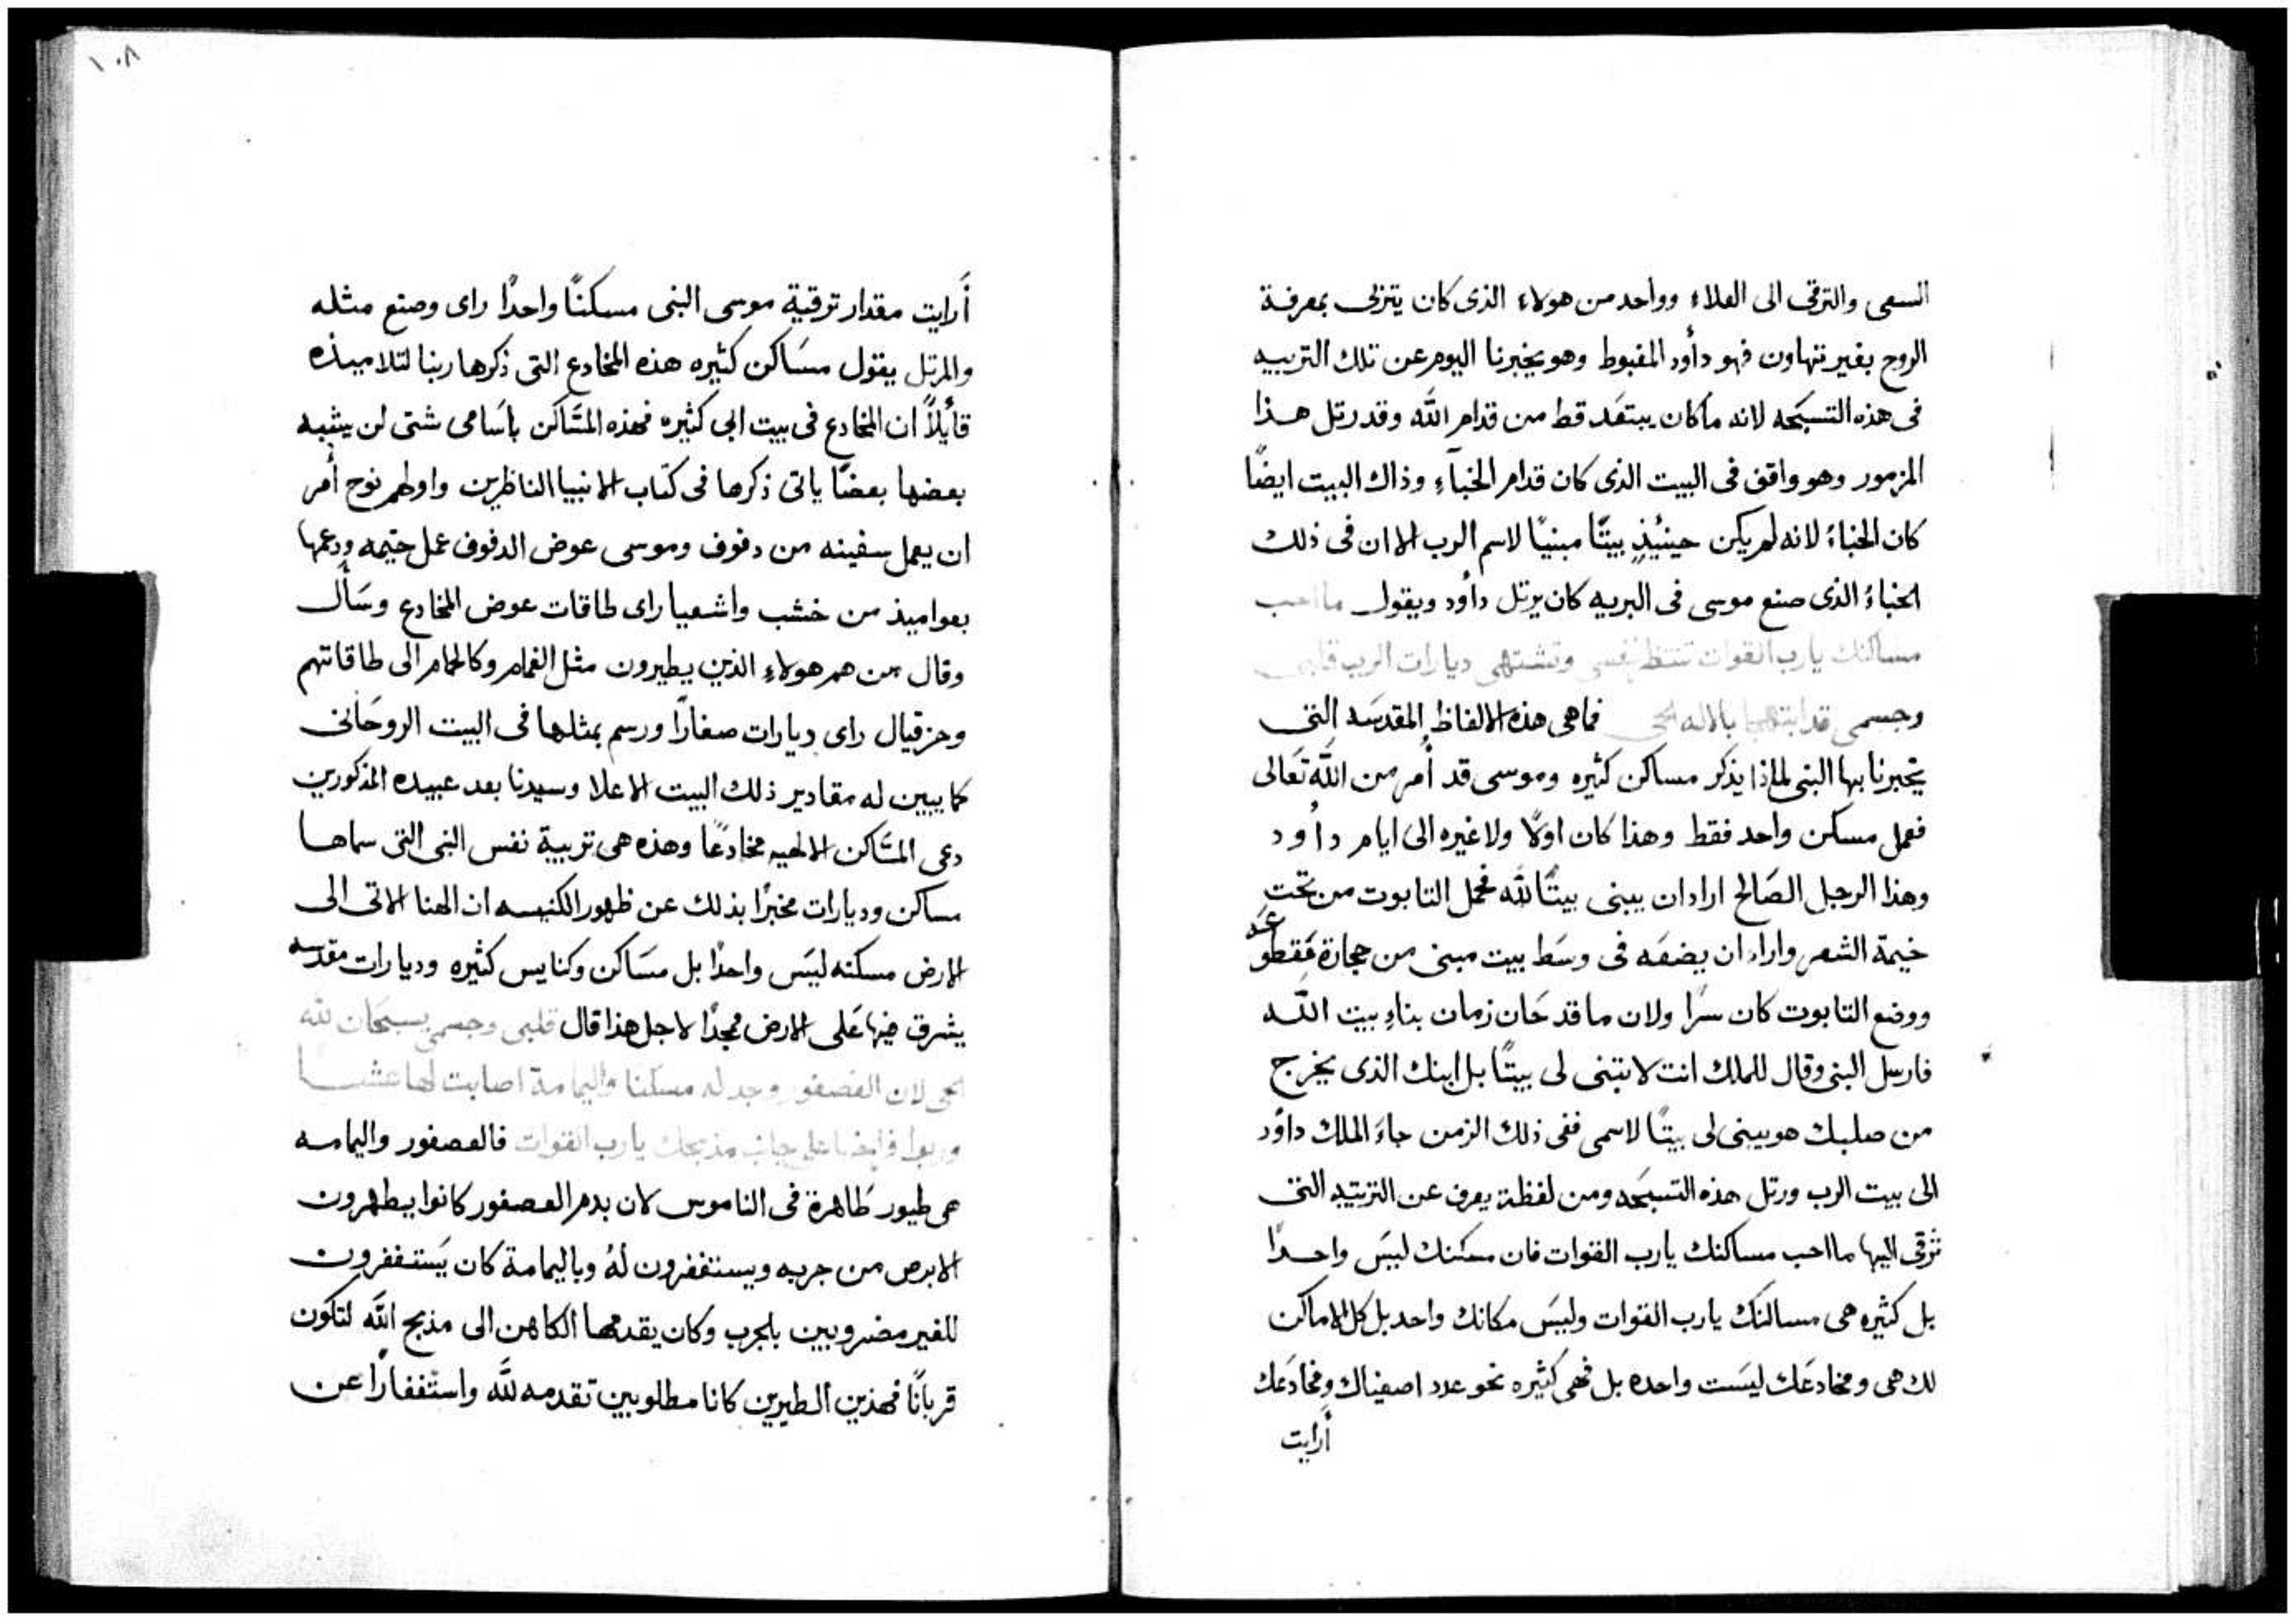 السعى والترقى الى العلاء وواحد من هولاء الذى كان يتزلى بمعرفة
الروح بغير تنهاون فهو داُود المغبوط وهو يخبرنا اليوم عن تلك التربيه
فى هذه التسبحه لانه ما كان يبتعد قط من قدام الله وقد رتل هذا
المزمور وهو واقف فى البيت الذى كان قدام الخبآءِ وذاك البيت ايضًا
كان الخباءُ لانه لم يكن حينيُذٍ بيتًا مبنيًا لاسم الرب الا ان فى ذلك
الخباءُ الذى صنع موسى فى البريه كان يرتل داُود ويقول ما احب
مساكنك يا رب القوات تنتظر نفسى وتشتهى ديارات الرب قلبى
وجسمى قد ابتهجا بالاله الحى فما هى هذه الالفاظ المقدسَه التى
يخبرنا بها النبى لماذا يذكر مساكن كثيره وموسى قد اُمر من الله تعَالى
فعمل مسكن واحد فقط وهذا كان اولًا ولا غيره الى ايام داُود
وهذا الرجل الصَالح اراد ان يبنى بيتًا لله فحمل التابوت من تحت
خيمة الشعر واراد ان يضعَه فى وسَط بيت مبنى من حجارة مَقطوعَه
ووضع التابوت كان سرًا ولان ما قد حَان زمان بناءِ بيت الله
فارسل النبى وقال للملك انت لا تبنى لى بيتًا بل ابنك الذى يخرج
من صلبك هو يبنى لى بيتًا لاسمى ففى ذلك الزمن جاءَ الملك داوُد
الى بيت الرب ورتل هذه التسبحَه ومن لفظة يعرف عن التربيه التى
تَرقى اليها ما احب مساكنك يا رب القوات فان مسكنك ليسَ واحدًا
بل كثيره هى مساكنك يا رب القوات وليسَ مكانك واحد بل كل الاماكن
لك هى ومخادعَك ليسَت واحده بل فهى كثيره نحو عدد اصفياك ومخادعَك
أرايت
١٠٨
أَرايت مقدار ترقية موسى النبى مسكنًا واحدًا راى وصنع مثله
والمرتل يقول مسَاكن كثيره هذه المخادع التى ذكرها ربنا لتلاميذه
قائلًا ان المخادع فى بيت ابى كثيره فهذه المسَاكن باسَامى شتى لن يشبه
بعضها بعضًا ياتى ذكرها فى كتاب الانبيا الناظرين واولهم نوح اُمر
ان يعمل سفينه من دفوف وموسى عوض الدفوف عمل خيمه ودعمها
بعواميذ من خشب واشعيا راى طاقات عوض المخادع وسَأل
وقال من هم هولاءِ الذين يطيرون مثل الغمام وكالحمام الى طاقاتهم
وحزقيال راى ديارات صغارًا ورسم بمثلها فى البيت الروحَانى
كما يبين له مقادير ذلك البيت الاعلا وسيدنا بعد عبيده المذكورين
دعى المسَاكن الالهيه مخادعًا وهذه هى تربية نفس النبى التى سماها
مساكن وديارات مخبرًا بذلك عن ظهور الكنيسه ان الهنا الاتى الى
الارض مسكنه ليسَ واحدًا بل مسَاكن وكنايس كثيره وديارات مقدسه
يشرق فيها عَلى الارض مُمجدًا لاجل هذا قال قلبى وجسمى يسبحَان لله
الحى لان العصفور وجد له مسكنا واليمامة اصابت لها عشا
على جانب مذبحك يا رب القوات فالعصفور واليمامه
هى طيور طَاهرة فى الناموس لان بدم العصفور كانوا يطهرون
الابرص من جربه ويستغفرون لهُ وباليمامة كان يَستغفرون
للغير مضروبين بلجرب وكان يقدمها الكاهن الى مذبح الله لتكون
قربانًا فهذين الطيرين كانا مطلوبين تقدمه لله واستغفارًا عن